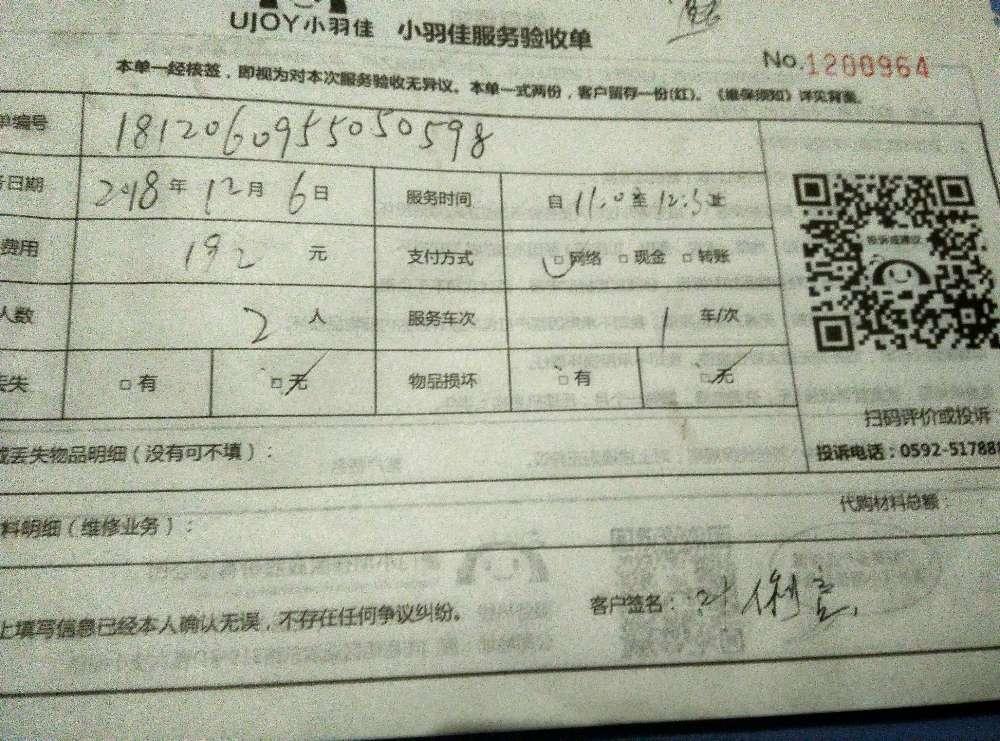 UJOY小羽佳 小羽佳服务验收单
No.1200964
本单一经核签，即视为对本次服务验收无异议。本单一式两份，客户留存一份(红)。《维保须知》详见背面。
单编号 181206095505 0598
日期 2018年12月6日 服务时间 自11:0至12:5止
费用 192元 支付方式 □网络 □现金 □转账
投诉或建议
人数 2人 服务车次 1车/次
丢失 □有 □无 物品损坏 □有 □无
扫码评价或投诉
或丢失物品明细（没有可不填）：
投诉电话：0592-517888
代购材料总额：
料明细（维修业务）：
上填写信息已经本人确认无误，不存在任何争议纠纷。 客户签名：